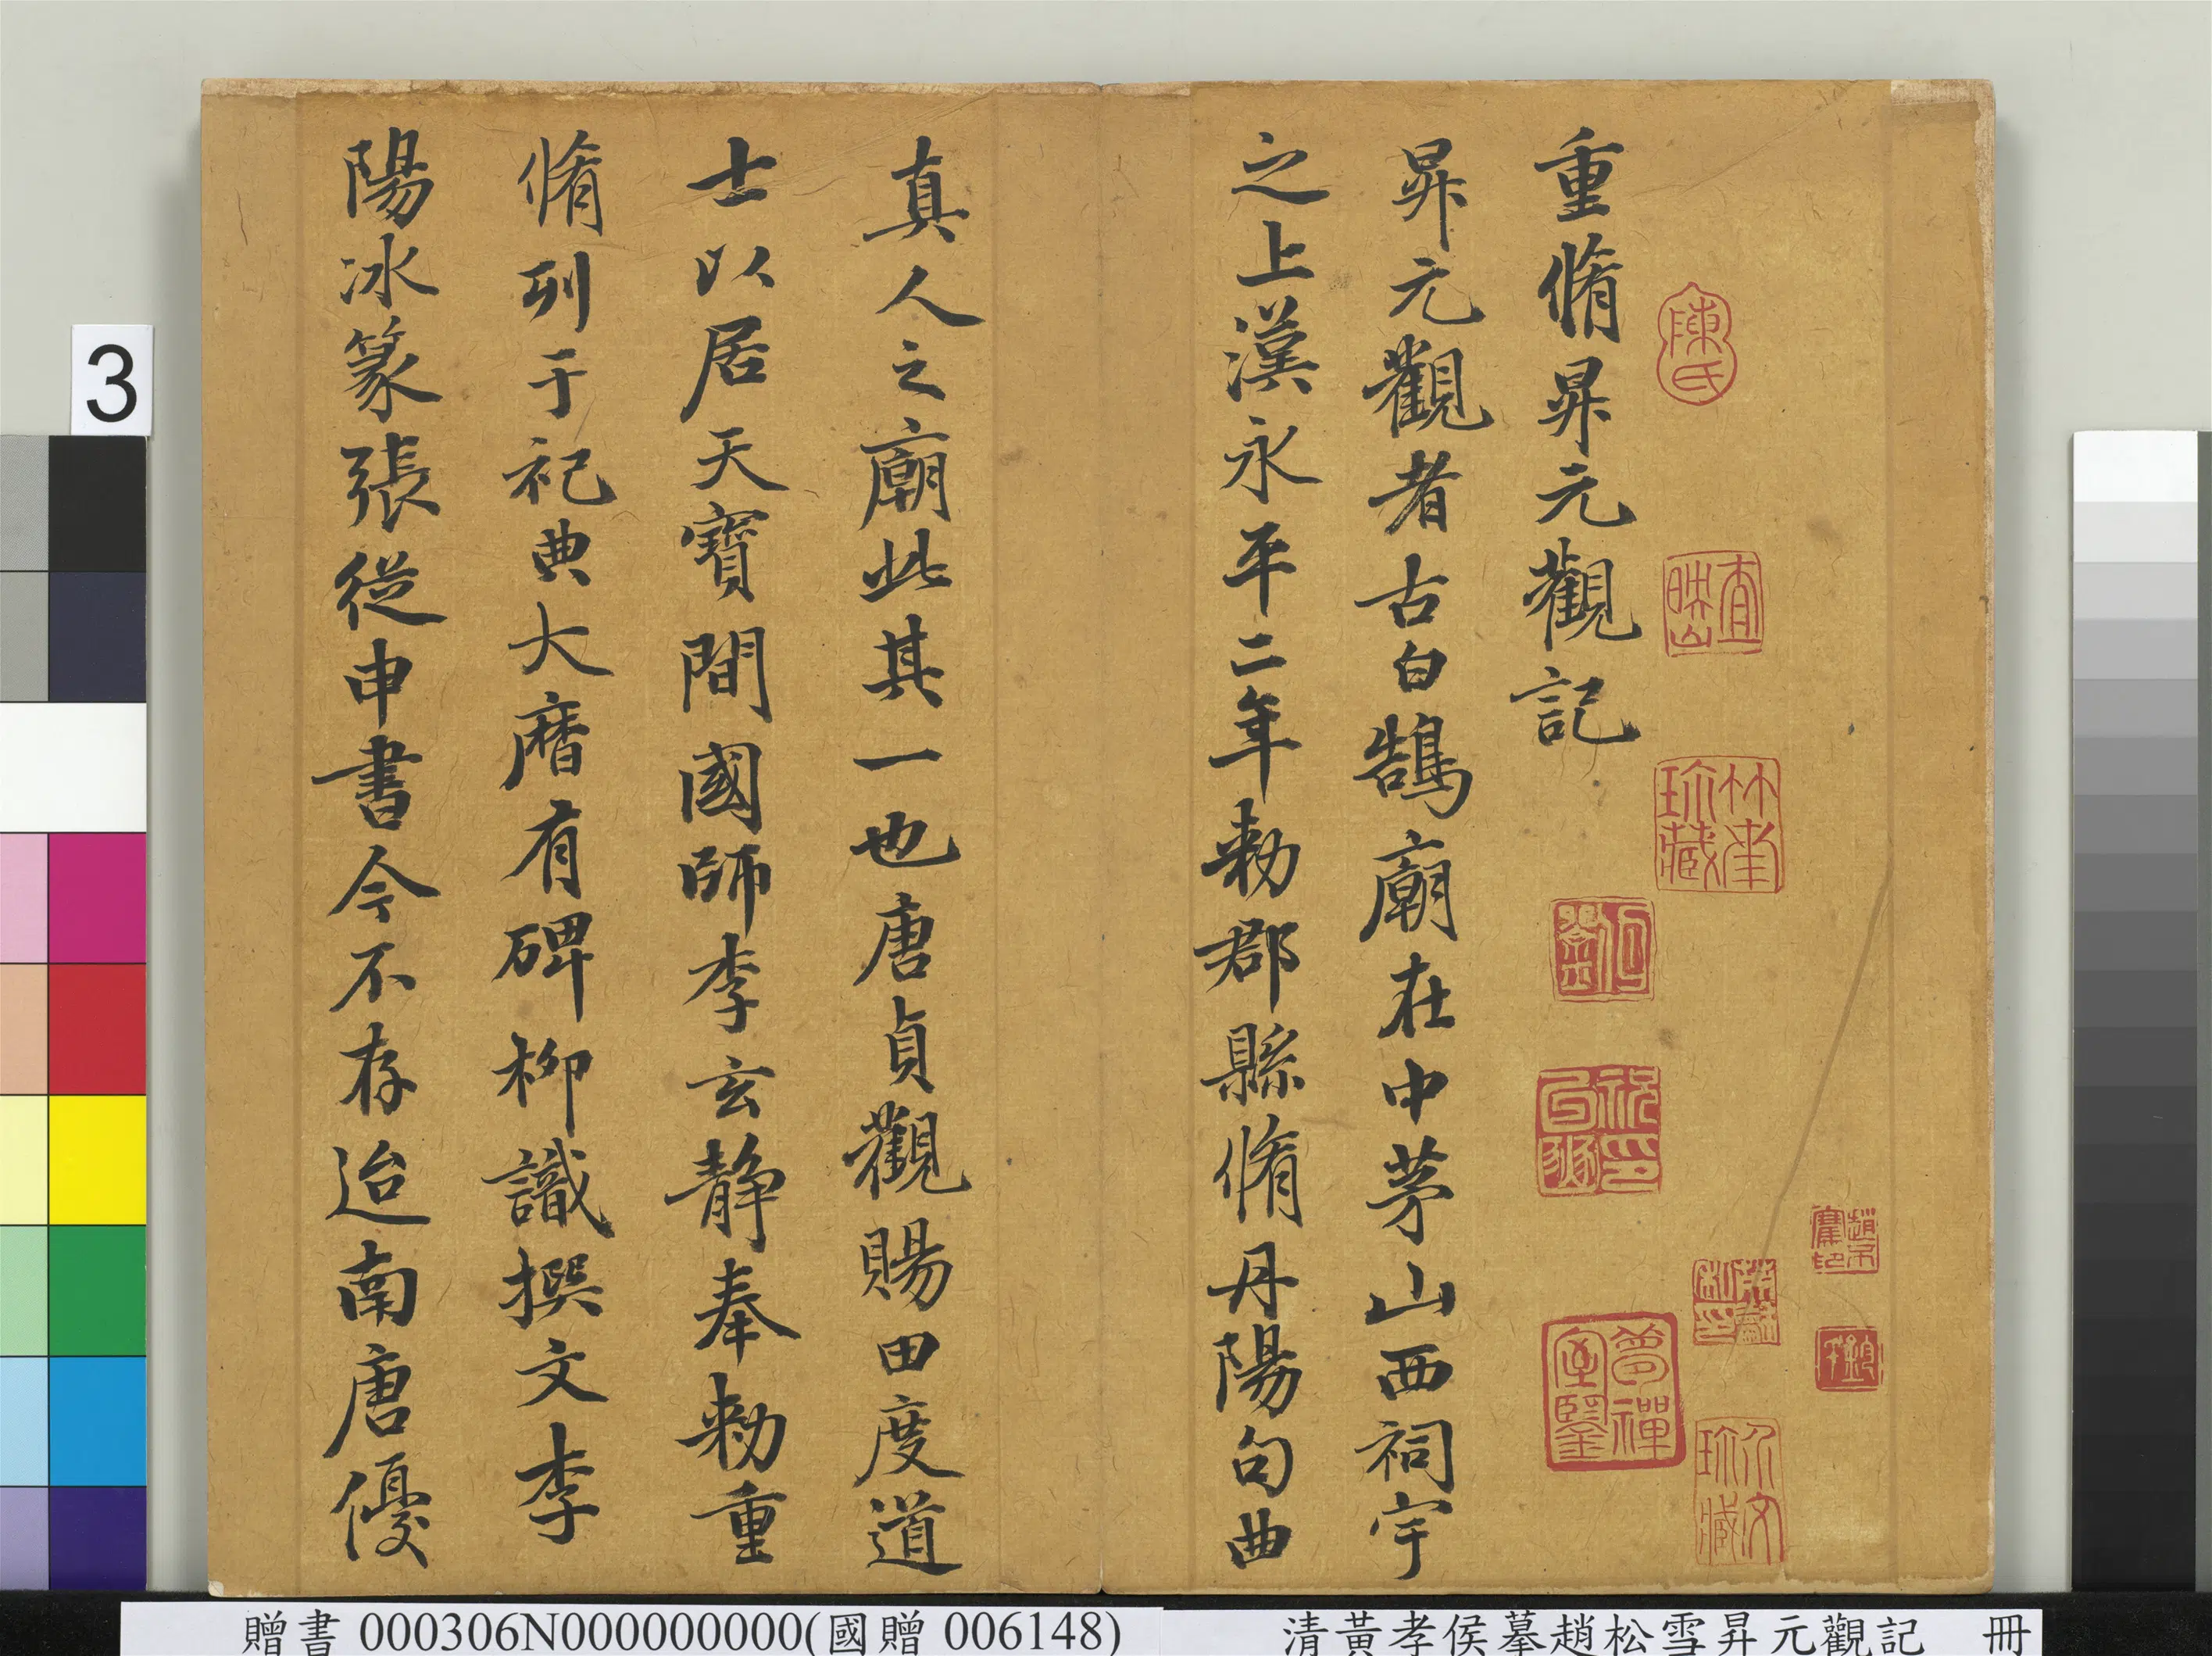 重脩昇元觀記
昇元觀者古白鵠廟在中茅山西祠宇
之上漢永平二年勑郡縣脩丹陽句曲
真人之廟此其一也唐貞觀賜田度道
士以居天寶間國師李玄静奉勑重
脩列于祀典大曆有碑柳識撰文李
陽冰篆張從申書今不存迨南唐優
陳氏
查映山
珍藏
夢禪室鑒
珍藏
3
贈書 000306N000000000(國贈 006148)
清黃孝侯摹趙松雪昇元觀記 冊